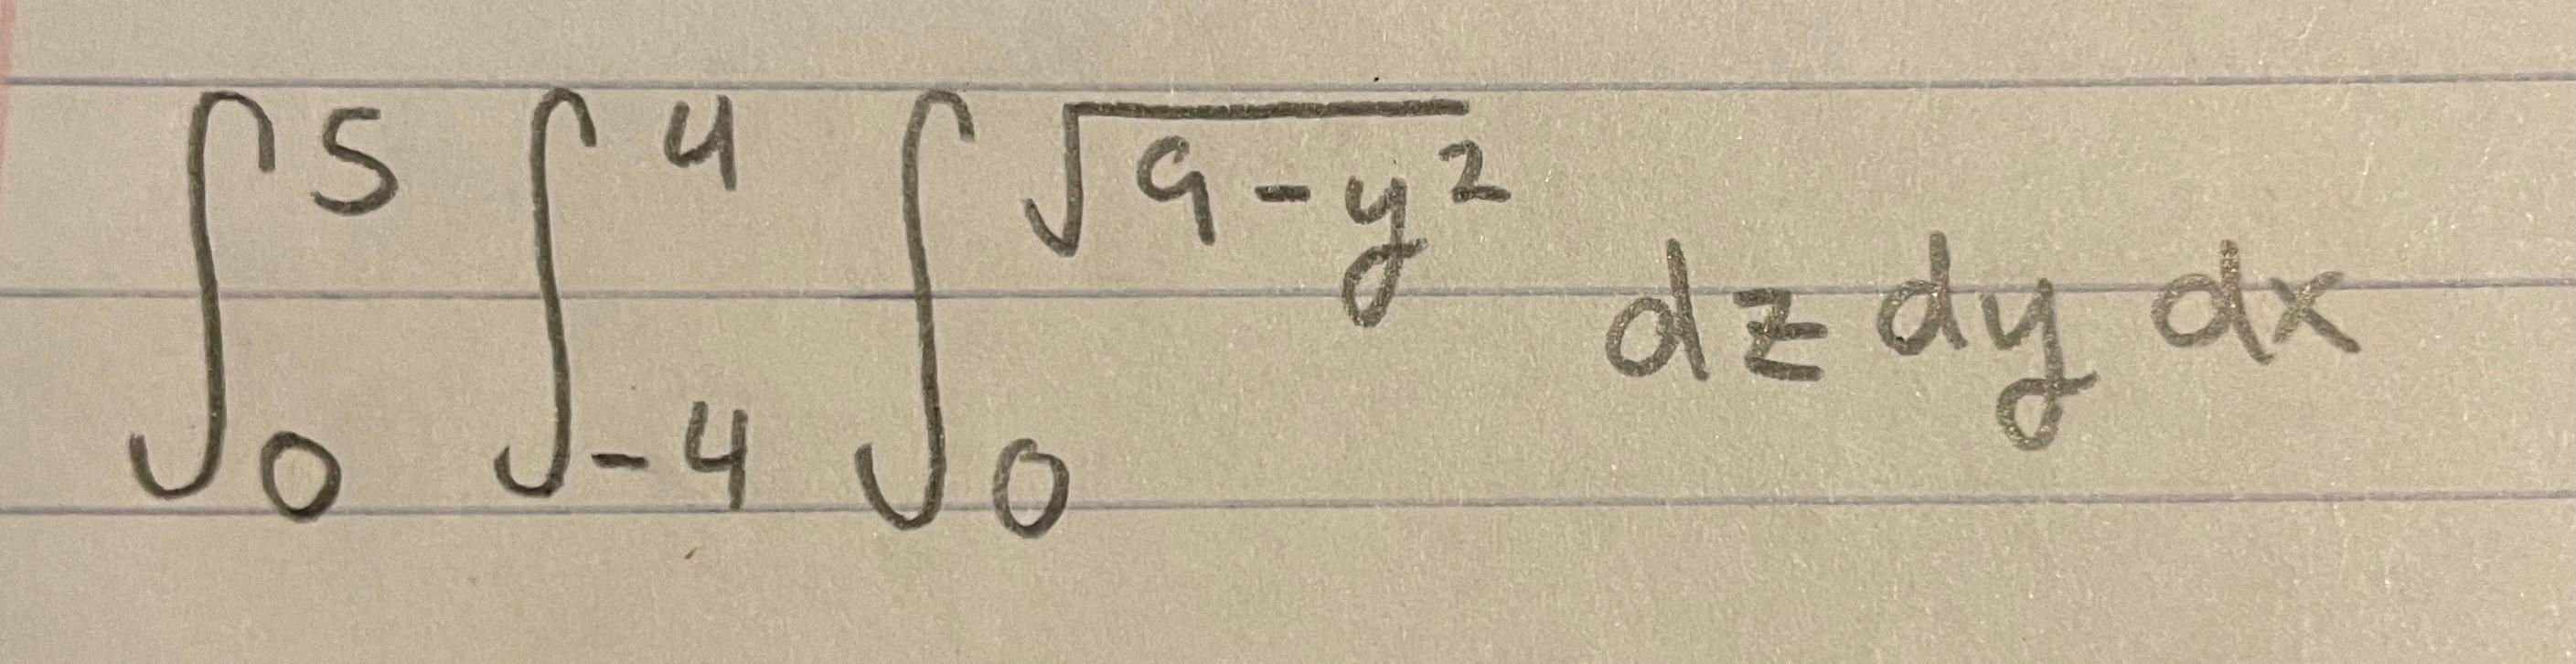 ∫_0^5 ∫_{-4}^4 ∫_0^{√(9-y²)} dz dy dx